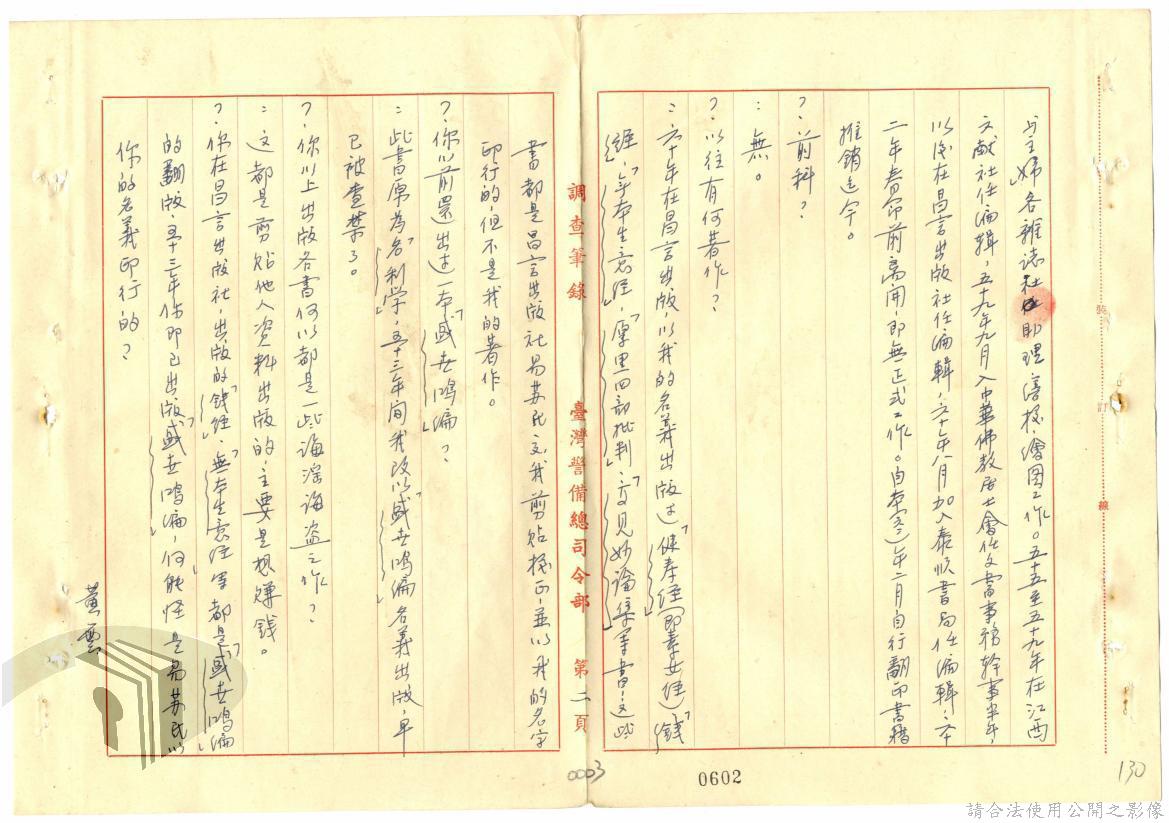 与主婦各雜誌社助理美術繪圖工作。五十五至五十九年在江西
文献社任编輯,五十九年九月入中華佛教居士會任文書事務幹事半年,
以後在昌言出版社任编輯,六十年八月加入泰順書局任编輯,六十
二年春節前离開,即無正式工作。自本(六三)年二月自行翻印書籍
推銷迄今。
?.前科?
:無。
?.以往有何著作?
:六十年在昌言出版,以我的名義出版过「健寿经」(即素女经)「錢
经」,「無本生意经」,「摩里四部批判」,「高見妙論集」等書,这些
書都是昌言出版社易苏民交我剪貼校正,並以我的名字
印行的,但不是我的著作。
?.你以前還出过一本「盛世鸣编」?
:此書原為「名利学」,五十三年间我改以「盛世鸣编」名義出版,早
已被查禁了。
?.你以上出版各書何以都是一些海淫海盗之作?
:这都是剪貼他人资料出版的,主要是想賺錢。
?.你在昌言出版社,出版的「錢经」、「無本生意经」等都是「盛世鸣编」
的翻版,五十三年你即已出版「盛世鸣编」,何能怪是易苏民以
你的名義印行的?
黄雲
調查筆錄 臺灣警備總司令部 第二頁
裝訂線
0003
0602
130
請合法使用公開之影像